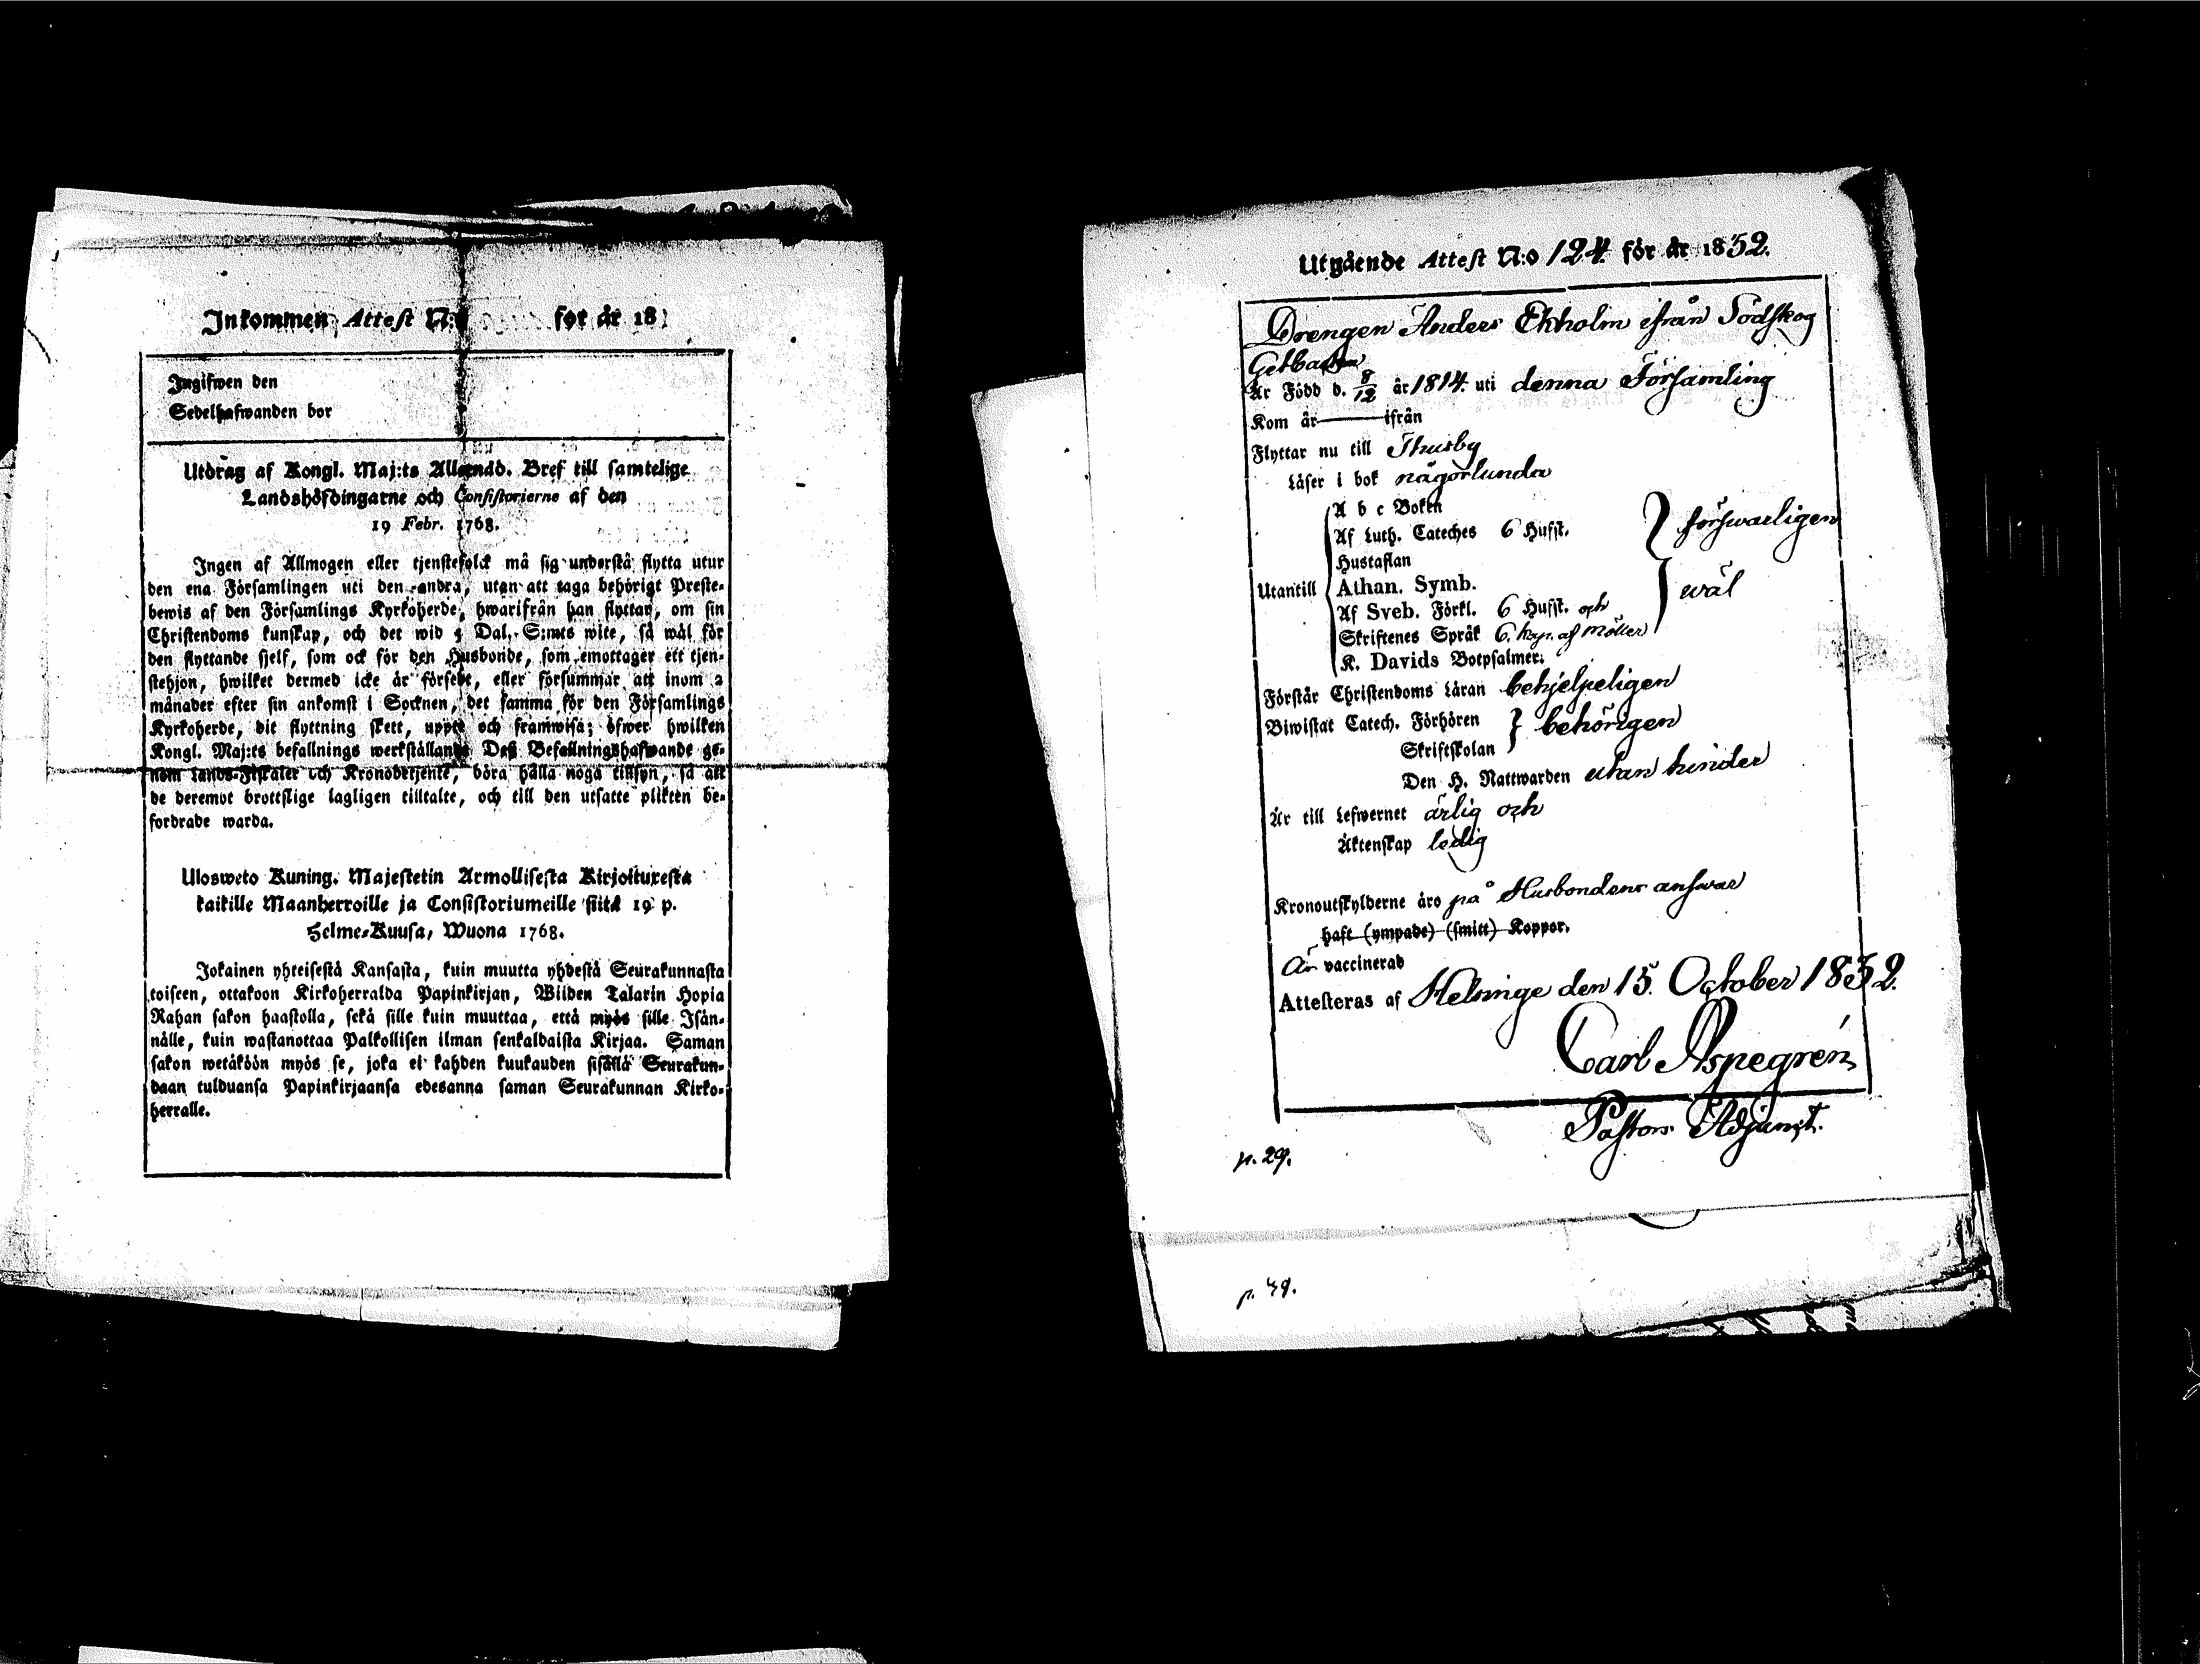 Inkommen Attest N:o för år 18
Ingifwen den
Sedelhafwanden bor
Utdrag af Kongl. Maj:ts Allernåd. Bref till samtelige
Landshöfdingarne och Consistorierne af den
19 Febr. 1768.
Ingen af Allmogen eller tjenstefolck må sig understå flytta utur
den ena Församlingen uti den andra, utan att taga behörigt Preste-
bewis af den Församlings Kyrkoherde, hwarifrån han flyttar, om sin
Christendoms kunskap, och det wid 5 Dal. S:mts wite, så wäl för
den flyttande sjelf, som ock för den Husbonde, som emottager ett tjen-
stehjon, hwilket dermed icke är försedt, eller försummar att inom 2
månader efter sin ankomst i Socknen, det samma för den Församlings
Kyrkoherde, dit flyttning skett, uppte och framwisa; öfwer hwilken
Kongl. Maj:ts befallnings werkställande Deß Befallningshafwande ge-
nom Lands-Fiskaler och Kronobetjente, böra hålla noga tillsyn, så att
de deremot brottslige lagligen tilltalte, och till den utsatte plikten be-
fordrade warda.
Ulosweto Kuning. Majestetin Armollisesta Kirjoituxesta
kaikille Maanherroille ja Consistoriumeille siitä 19 p.
Helme-Kuusa, Wuona 1768.
Jokainen yhteisestä Kansasta, kuin muutta yhdestä Seurakunnasta
toiseen, ottakoon Kirkoherralda Papinkirjan, Wiiden Talarin Hopia
Rahan sakon haastolla, sekä sille kuin muuttaa, että myös sille Isän-
nälle, kuin wastanottaa Palkollisen ilman senkaldaista Kirjaa. Saman
sakon wetäköön myös se, joka ei kahden kuukauden sisällä Seurakun-
daan tulduansa Papinkirjaansa edesanna saman Seurakunnan Kirko-
herralle.
Utgående Attest N:o 124 för år 1832.
Drengen Anders Ekholm ifrån Södskog
Getbacka
Är Född d. 8/12 år 1814. uti denna Församling
Kom år — ifrån
Flyttar nu till Thusby
Läser i bok någorlunda
A b c Boken
Af Luth. Cateches 6 Hufst. } förswarligen
Hustaflan
Utantill Athan. Symb. } wäl
Af Sveb. Förkl. 6 Hufst. och
Skriftenes Språk 6. kap. af Möller
K. Davids Botpsalmer.
Förstår Christendoms Läran behjelpeligen
Biwistat Catech. Förhören } behörigen
Skriftskolan
Den H. Nattwarden utan hinder
Är till Lefwernet ärlig och
Äktenskap ledig
Kronoutskylderne äro på Husbondens answar
haft (ympade) (smitt) Koppor.
Är vaccinerad
Attesteras af Helsinge den 15. October 1832.
Carl Aspegrén
Pastors Adjunct.
p. 29.
p. 49.